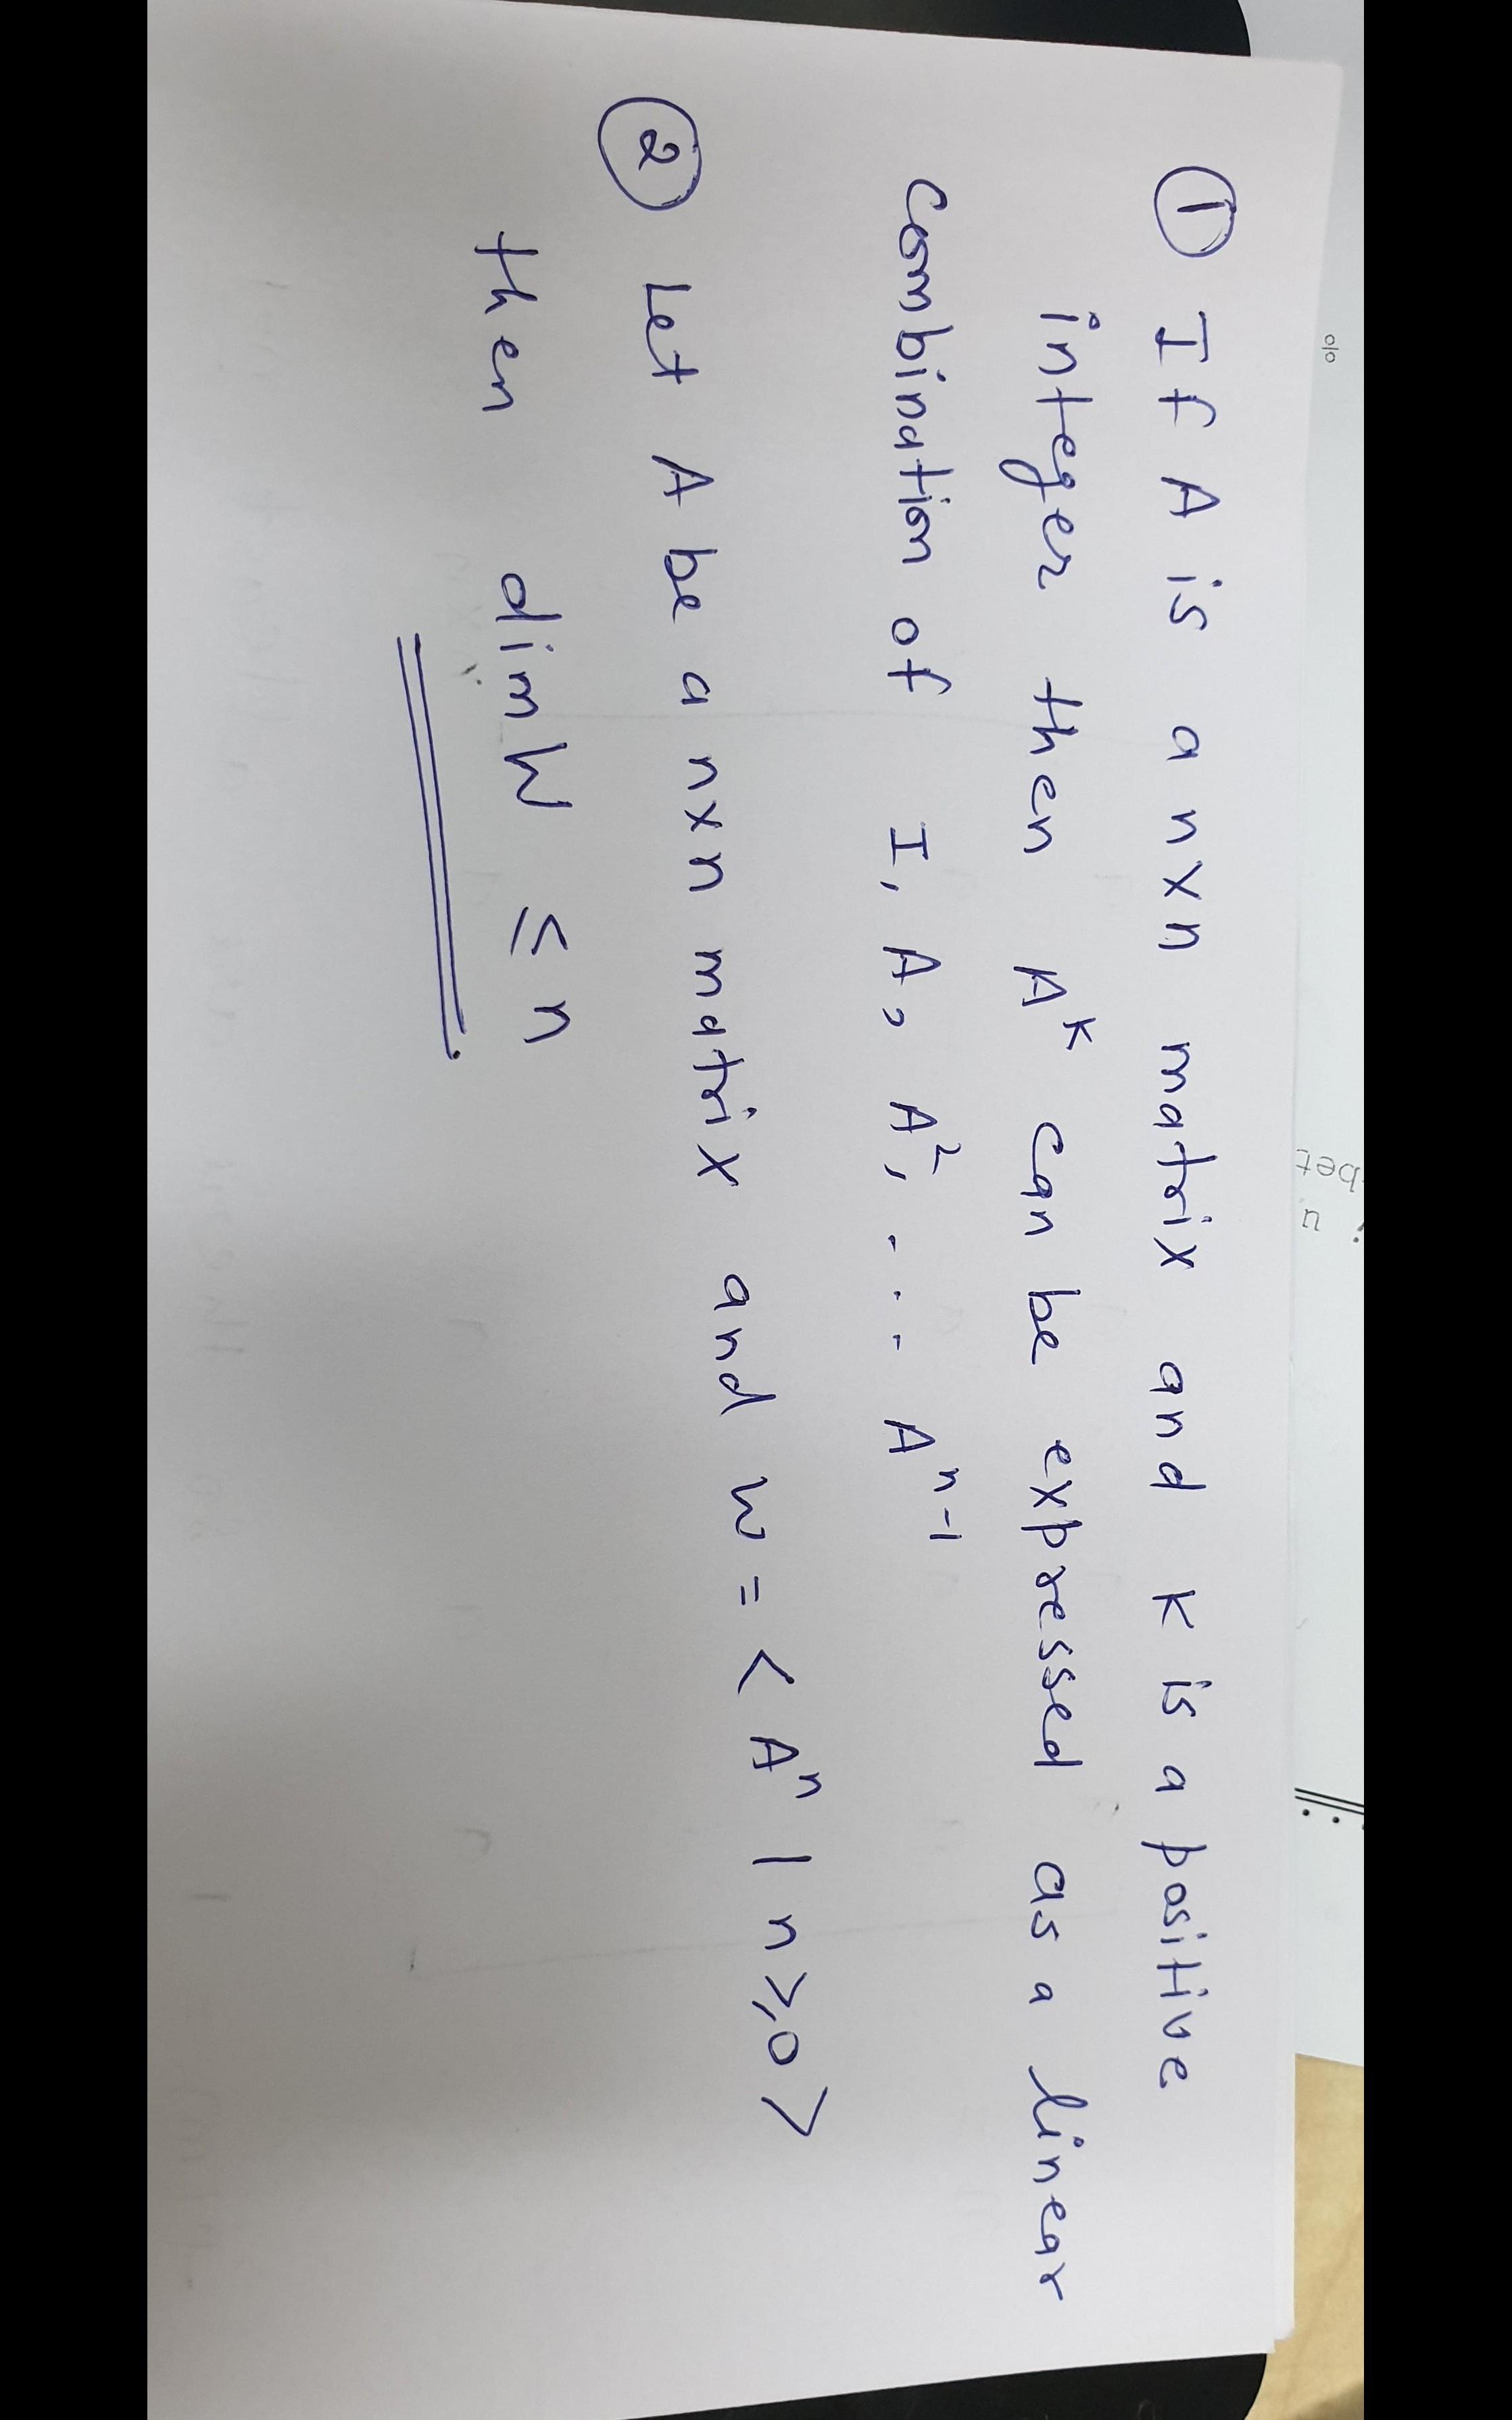 ① If A is a n×n matrix and K is a positive
integer then A^K can be expressed as a linear
combination of I, A, A², . . . A^{n-1}
② Let A be a n×n matrix and W = < Aⁿ | n ≥ 0 >
then dim W ≤ n